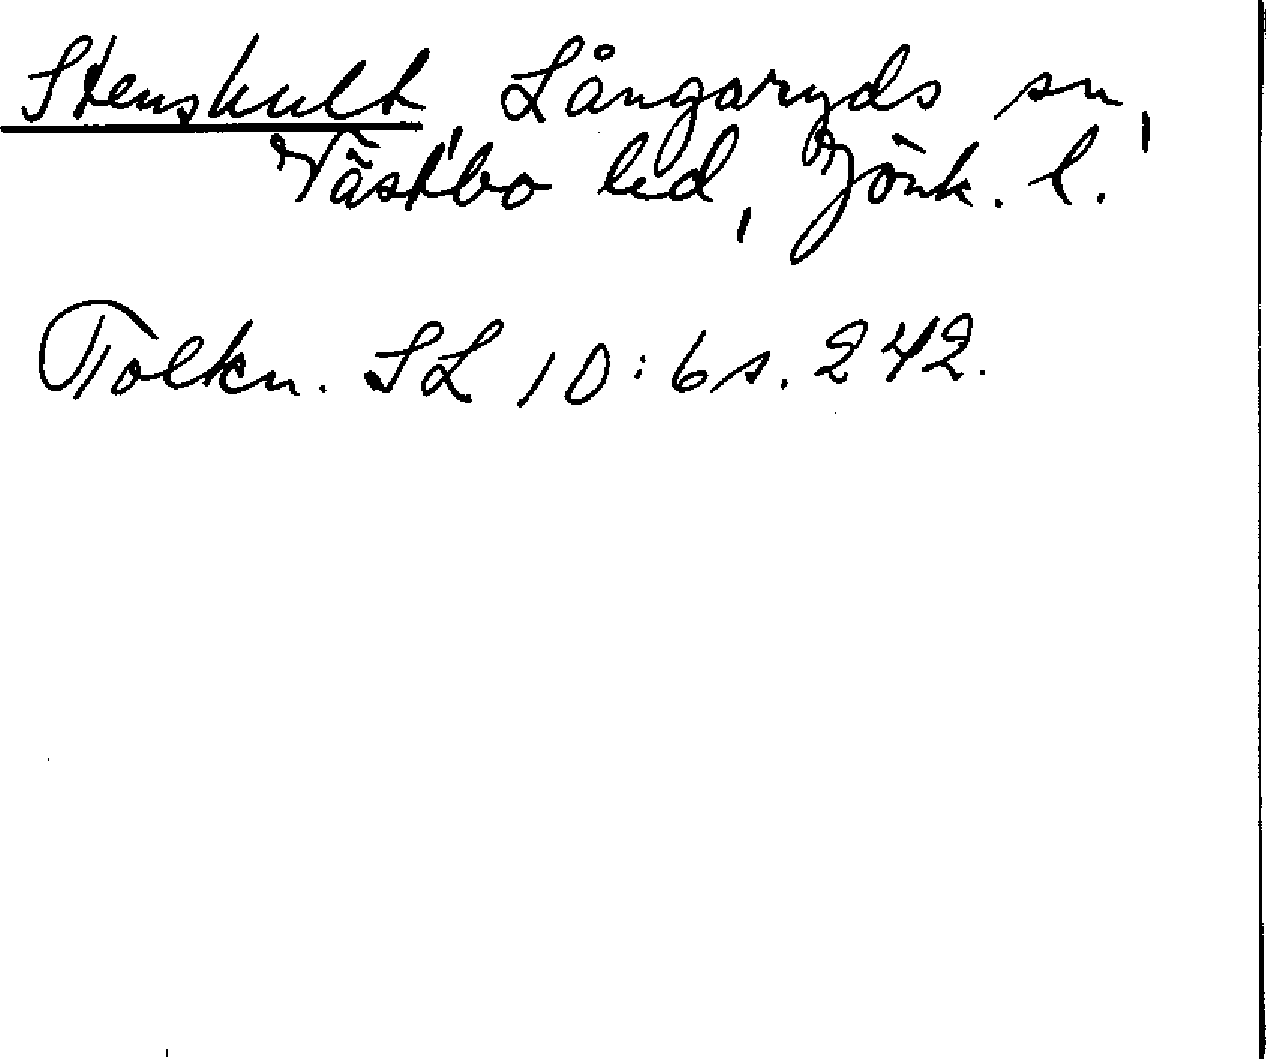 Stenskult, Långaryds sn,
Västbo hd, Jönk. l.
Tolkn. SL 10:6 s. 242.